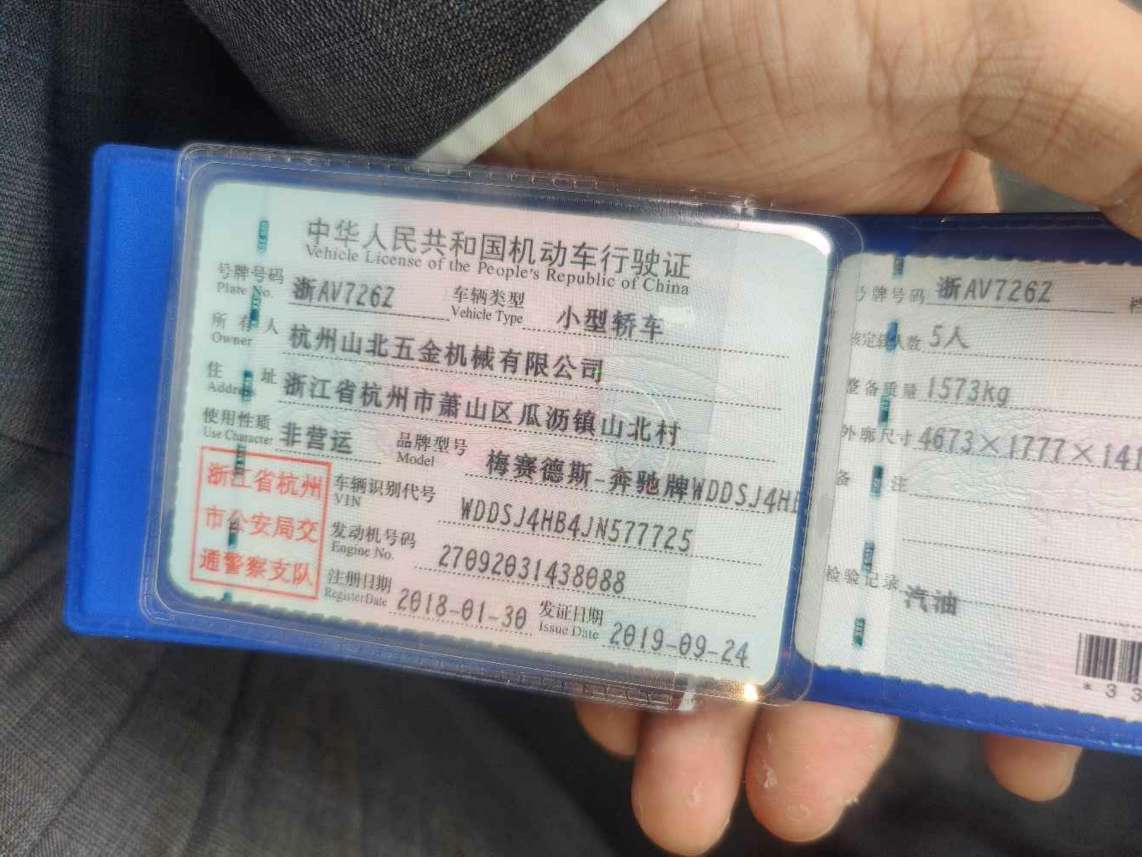 中华人民共和国机动车行驶证
Vehicle License of the People's Republic of China
号牌号码 浙AV726Z 车辆类型 小型轿车
Plate No. Vehicle Type
所有人 杭州山北五金机械有限公司
Owner
住址 浙江省杭州市萧山区瓜沥镇山北村
Address
使用性质 非营运 品牌型号 梅赛德斯-奔驰牌WDDSJ4HB
Use Character Model
浙江省杭州
市公安局交
通警察支队
车辆识别代号 WDDSJ4HB4JN577725
VIN
发动机号码 27092031438088
Engine No.
注册日期 2018-01-30 发证日期 2019-09-24
Register Date Issue Date
号牌号码 浙AV726Z
核定载人数 5人
整备质量 1573kg
外廓尺寸 4673×1777×141
备注
检验记录 汽油
*33